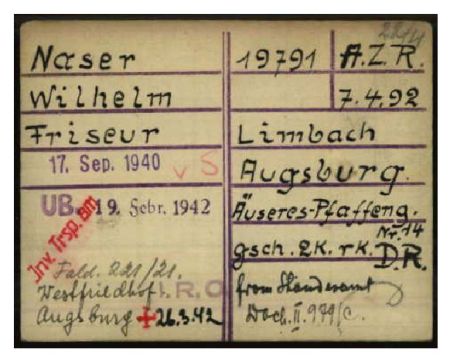 Naser
Wilhelm
Friseur
17. Sep. 1940
v S
UB. 19. Febr. 1942
Inv. Trsp. am
Feld. 221/21.
Westfriedhof I.R.O
Augsburg + 26.3.42
19791 A.Z.R.
7.4.92
Limbach
Augsburg.
Äuseres-Pfaffeng.
Nr. 14
gsch. 2K. rk. D.R.
from Standesamt
Doc. II. 979/c.